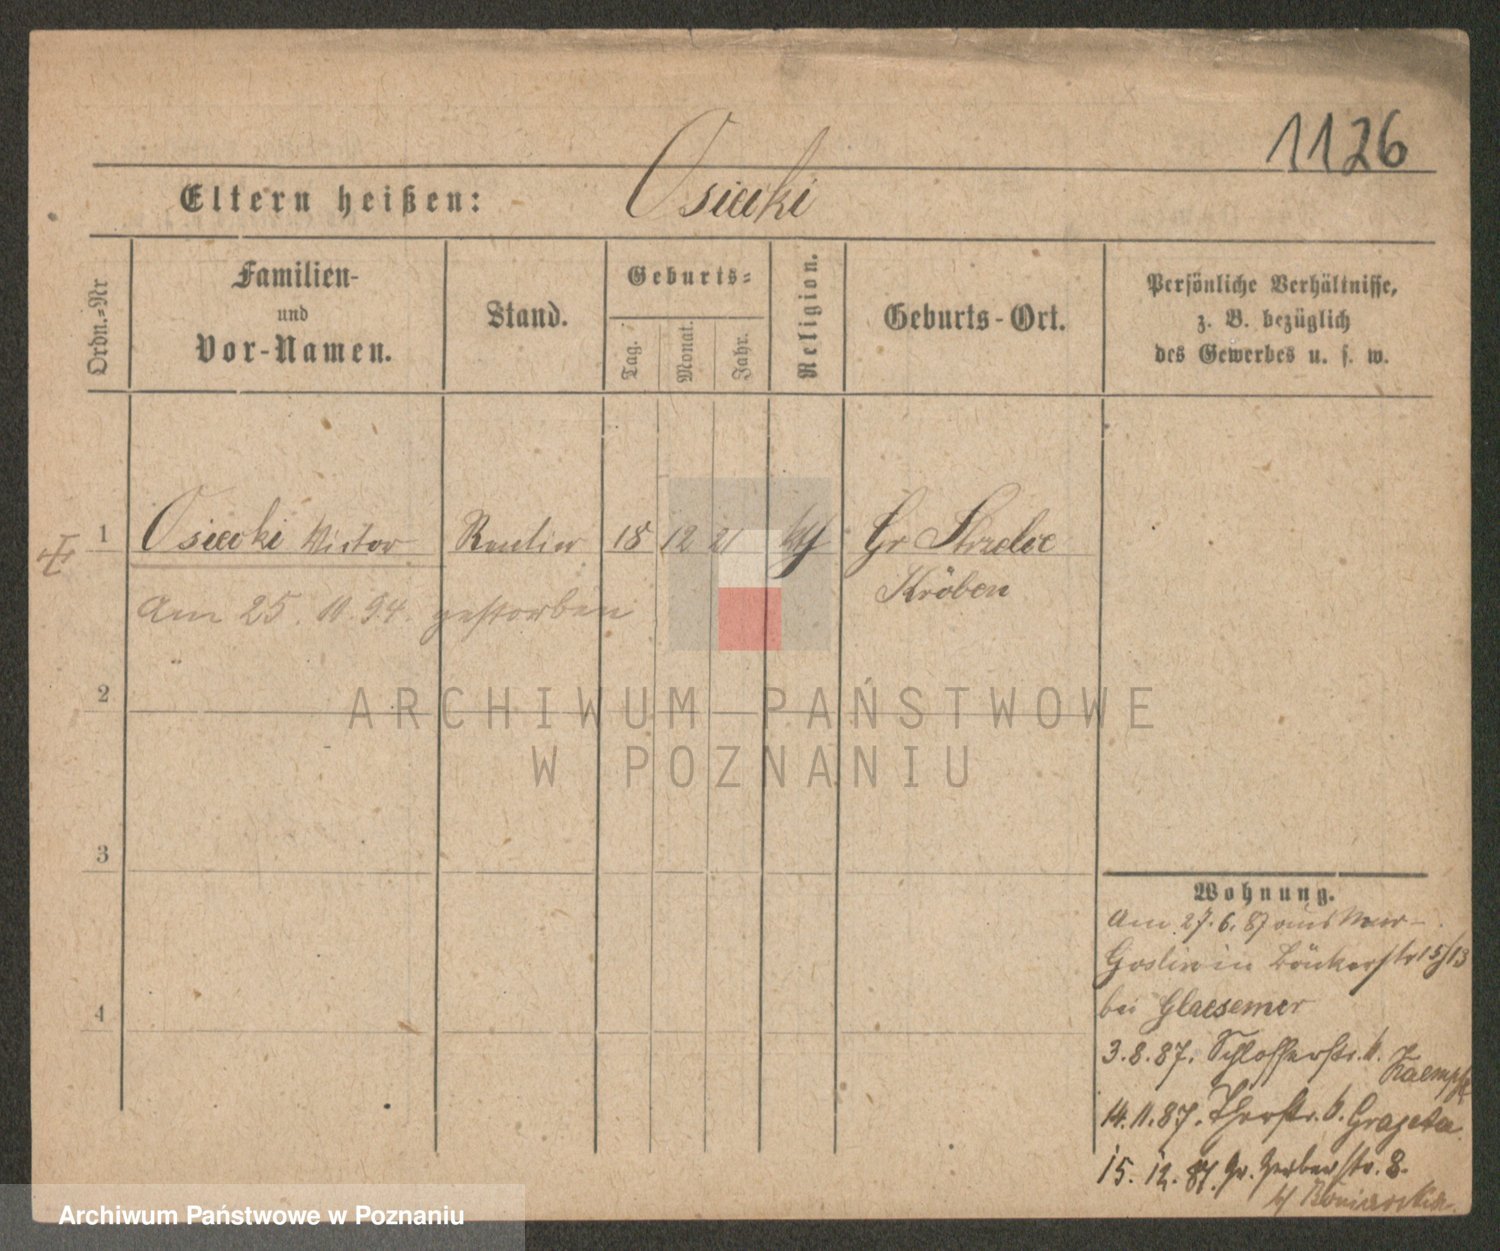 1126
Eltern heißen: Osiecki
Ordn.-Nr
Familien-
und
Vor-Namen.
Stand.
Geburts-
Tag.
Monat.
Jahr.
Religion.
Geburts-Ort.
Persönliche Verhältnisse,
z. B. bezüglich
des Gewerbes u. s. w.
1 Osiecki Victor Rentier 18 12 21 Gr Strzelce
Kröben
Am 25. 11. 94. gestorben
2
ARCHIWUM PAŃSTWOWE
W POZNANIU
3
Wohnung.
Am 27. 6. 87 aus Mur-
Goslin in Bäckerstr 15/13
bei Glaesemer
4
3. 8. 87. Schlosserstr. b. Kaempfe
14. 11. 87. Thorstr. b.
15. 12. 87. Gr. Gerberstr. 8.
Archiwum Państwowe w Poznaniu